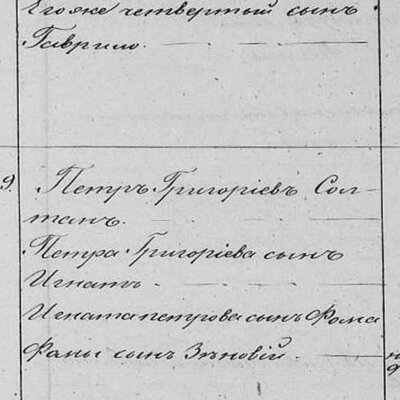 Егоже четвертый сынъ
Гаврило.
9. Петръ Григоріевъ Сол-
танъ.
Петра Григоріева сынъ
Игнатъ.
Игната петрова сынъ Фома
Фомы сынъ Зѣновій.